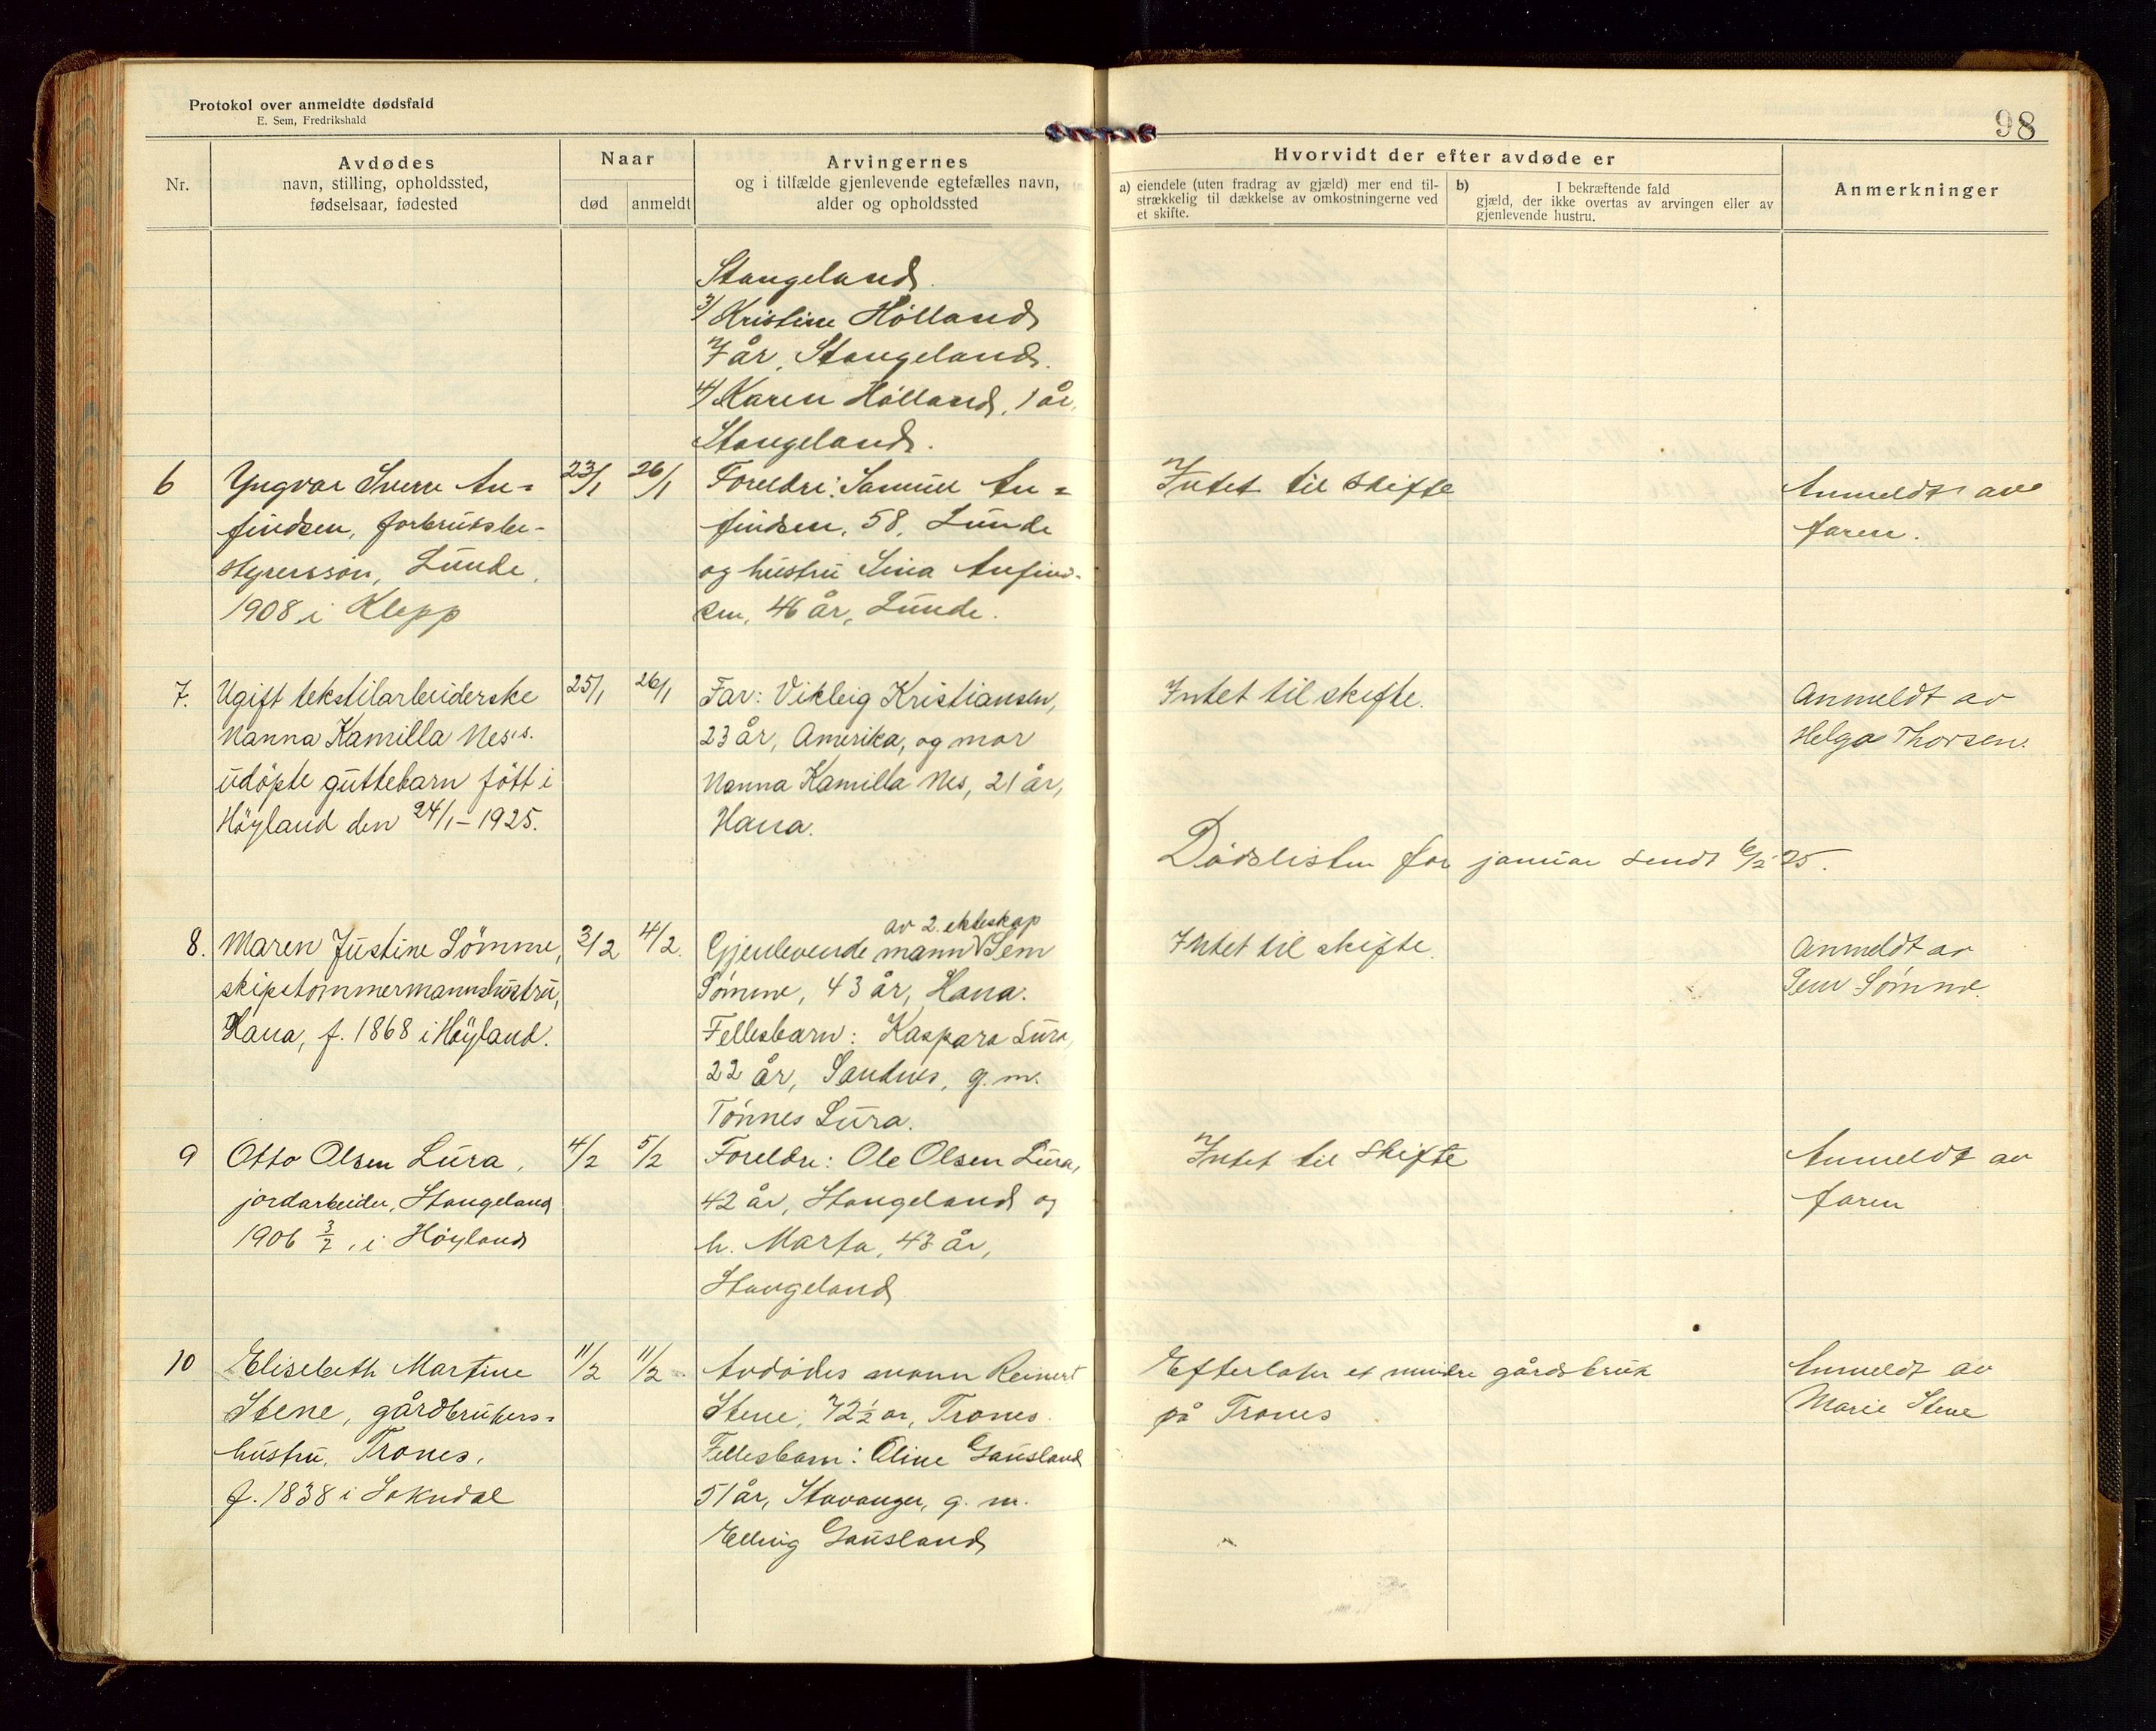 Protokol over anmeldte dødsfald
E. Sem, Fredrikshald
98
Nr.
Avdødes
navn, stilling, opholdssted,
fødselsaar, fødested
Naar
død
anmeldt
Arvingernes
og i tilfælde gjenlevende egtefælles navn,
alder og opholdssted
Hvorvidt der efter avdøde er
a) eiendele (uten fradrag av gjæld) mer end til-
strækkelig til dækkelse av omkostningerne ved
et skifte.
b) I bekræftende fald
gjæld, der ikke overtas av arvingen eller av
gjenlevende hustru.
Anmerkninger
Stangeland.
3/ Kristine Hölland
7 år, Stangeland.
4/ Karen Hölland, 1 år,
Stangeland.
6
Yngvar Sverre An=
findsen, forbruksbe-
styrerssön, Lunde,
1908 i Klepp
23/1
26/1
Foreldre: Samuel An=
findsen, 58, Lunde
og hustru Sina Anfind-
sen, 46 år, Lunde.
Intet til skifte
Anmeldt av
faren.
7.
Ugift tekstilarbeiderske
Nanna Kamilla Nes's.
udöpte guttebarn fött i
Höyland den 24/1 - 1925.
25/1
26/1
Far: Vikleig Kristiansen,
23 år, Amerika, og mor
Nanna Kamilla Nes, 21 år,
Hana.
Intet til skifte.
Anmeldt av
Helga Thorsen.
Dödslisten for januar sendt 6/2 25.
8.
Maren Justine Sömme,
skipstömmermannshustru,
Hana, f. 1868 i Höyland.
3/2
4/2.
av 2. ekteskap
Gjenlevende mann Sem
Sömme, 43 år, Hana.
Fellesbarn: Kaspara Lura,
22 år, Sandnes, g. m.
Tönnes Lura.
Intet til skifte.
Anmeldt av
Sem Sömme.
9
Otto Olsen Lura,
jordarbeider, Stangeland
1906 3/2, i Höyland
4/2
5/2
Foreldre: Ole Olsen Lura,
42 år, Stangeland og
h. Marta, 43 år,
Stangeland
Intet til skifte
Anmeldt av
faren
10
Elisebeth Martine
Stene, gårdbrukers=
hustru, Trones,
f. 1838 i Sokndal
11/2
11/2
Avdödes mann Reinert
Stene, 72 1/2 år, Trones.
Fellesbarn: Oline Gausland
51 år, Stavanger, g. m.
Elling Gausland
Efterlater et mindre gårdsbruk
på Trones
Anmeldt av
Marie Stene